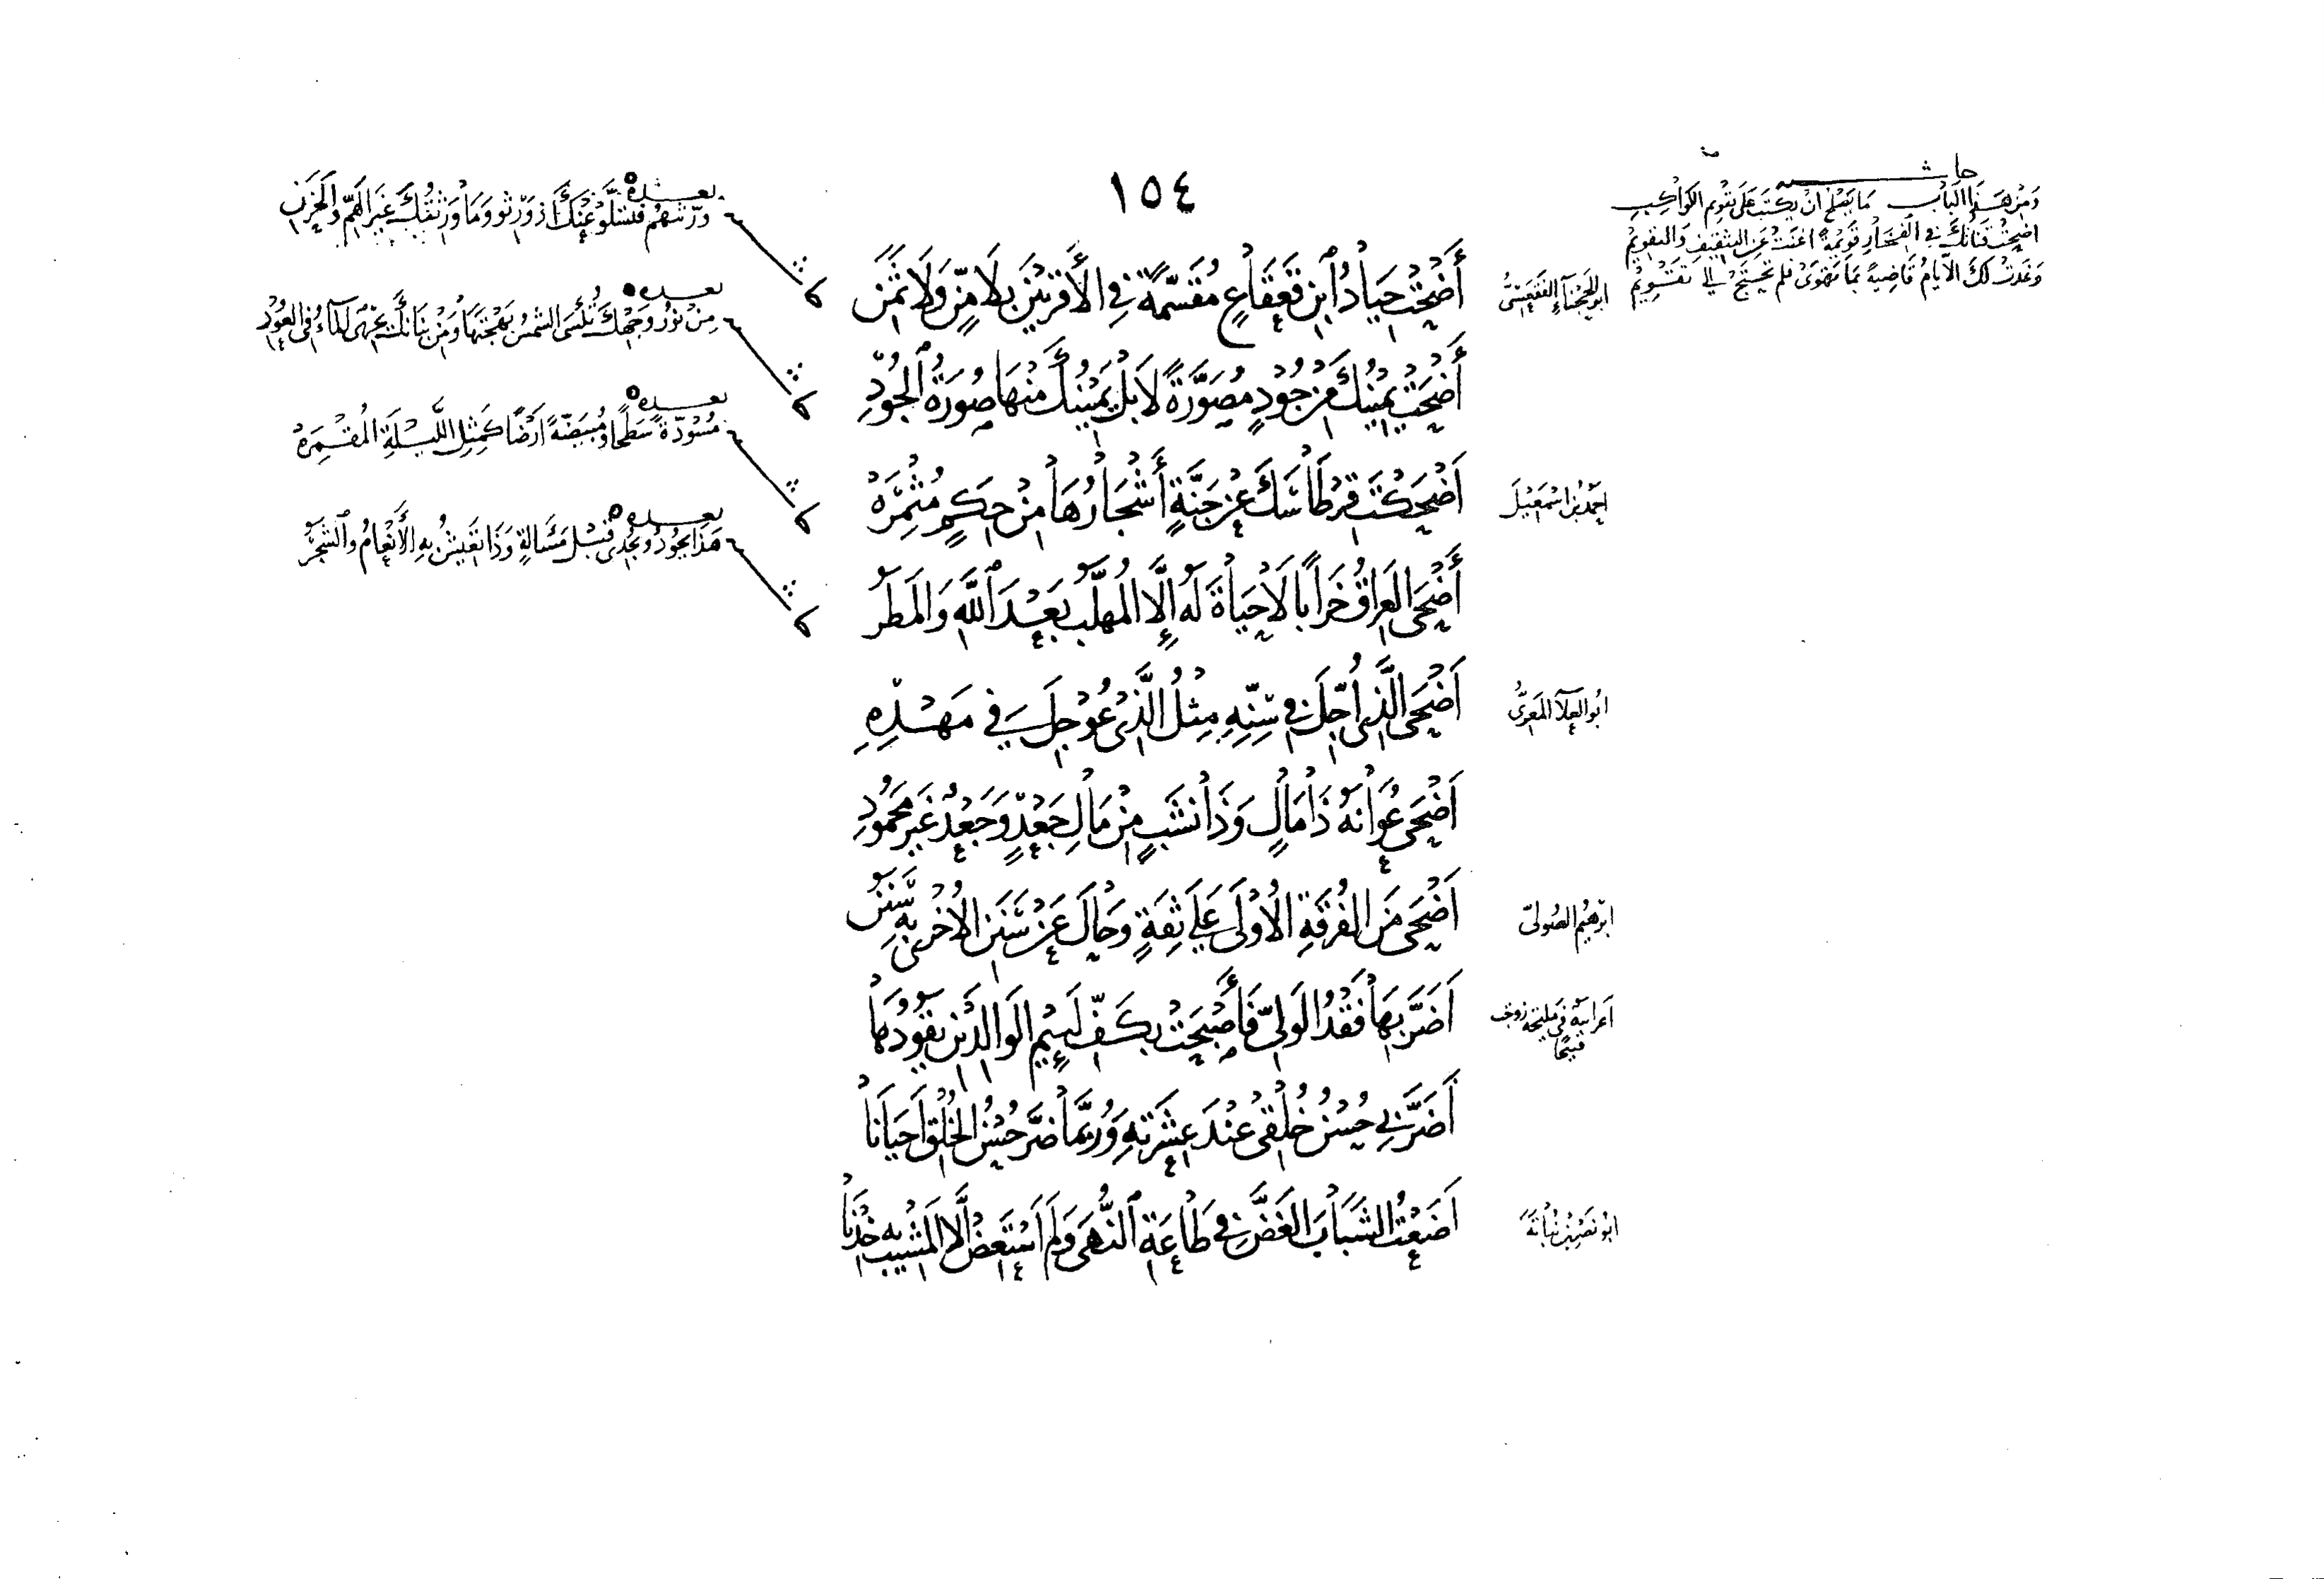 ١٥٤
حاشية
وَمِنْ هَذَا البَابِ مَا يَصْلُحُ انْ يُكتَبَ عَلَى تَقْوِيمِ الكَوَاكِبِ
اضْحَتْ قَنَاتُكَ فِي الفَخَارِ قَوِيْمَةً اغنَتْ عَنِ التثقِيفِ وَالتقويْمِ
وَغَدَتْ لَكَ الأَيامُ قَاضِيةً بمَا تَهْوَى فلم تَحْتَجْ إِلَى تَقْوِيْمِ
ابُو الحَجْنَاءِ الفَقْعَسِيُّ
أَضْحَتْ جِيَادُ ابْنِ قَعْقَاعٍ مُقَسَّمَةً فِي الأَقْرَبِيْنَ بِلَا مَنٍّ وَلَا ثَمَنِ
بعـــده
وَرَّثْتَهُم فَتَسَلَّوْا عَنْكَ إذ وَرِثُوا وَمَا وَرِثْتُكَ غَيْرَ الهَمِّ وَالحَزَنِ
أَضْحَتْ يَمِيْنُكَ مِنْ جُوْدٍ مُصَوَّرَةً لَا بَلْ يَمِيْنُكَ مِنْهَا صُوْرَةُ الجُوْدِ
بعـــده
مِنْ نُوْرِ وَجْهِكَ تُكْسَى الشمْسُ بَهْجَتَهَا وَمِنْ بَنَانِكَ يجْرِي المَاءُ فِي العُوْدِ
احْمَدُ بْنُ اسْمَعِيْلَ
اَضْحَكْتَ قِرْطَاسَكَ عَنْ جَنَّةٍ أَشْجَارُهَا مِنْ حِكَمٍ مُثْمِرَهْ
بعـــده
مُسْوَدَّةً سَطْحًا وَمُبْيَضَّةً أَرْضًا كَمِثْلِ اللَّيْلَةِ المُقْمِرَهْ
أَضْحَى العِرَاقُ خَرَابًا لَا حَيَاةَ لَهُ إِلَّا المُهَلَّبُ بَعْدَ اللهِ وَالمَطَرُ
بعـــده
هَذَا يَجُوْدُ وَيُجْدِي قَبْلَ مَسْأَلَةٍ وَذَا تَعِيْشُ بِهِ الأَنْعَامُ وَالشَّجَرُ
ابُو العَلَاءِ المَعَرِّيُّ
اَضْحَى الَّذِي أُجِّلَ فِي سِنِّهِ مِثْلَ الَّذِي عُوْجِلَ فِي مَهْدِهِ
اَضْحَى عُوَانَةُ ذَا مَالٍ وَذَا نَشَبٍ مِنْ مَالِ جَعْدٍ وَجَعْدٌ غَيْرُ مَحْمُوْدِ
ابْرهِيْمُ الصُولِيّ
اَضْحَى مِنَ الفُرْقَةِ الأُوْلَى عَلَى ثِقَةٍ وَحَالَ عَنْ سَنَنِ الأُخْرَى بِهِ سَنَنُ
اعرَابية فِي مليحة زوجت قبيحًا
اَضَرَّ بِهَا فَقْدُ الوَلِيِّ فَأَصْبَحَتْ بِكَفِّ لَئِيْمِ الوَالِدَيْنِ يَقُوْدُهَا
اَضَرَّ بِي حُسْنُ خُلْقِي عِنْدَ عِشْرَتِهِ وَرُبَّمَا ضَرَّ حُسْنُ الخُلْقِ اَحْيَانَا
ابُو نَصْرِ بْنُ نُبَاتَةَ
اَضَعْتُ الشَّبَابَ الغَضَّ فِي طَاعَةِ النُّهَى وَلَمْ اَسْتَعِضْ اِلَّا المَشِيْبَ بِهِ خِدْنَا